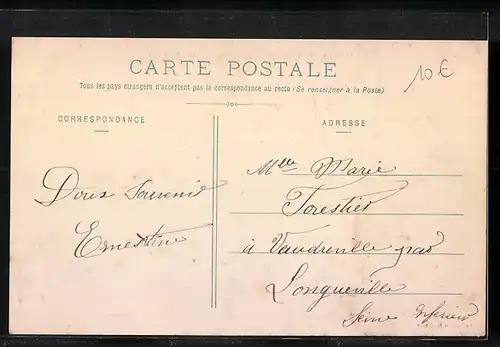 CARTE POSTALE
10€
Tous les pays étrangers n'acceptent pas la correspondance au recto (Se renseigner à la Poste)
CORRESPONDANCE
ADRESSE
Doux Souvenir
Ernestine
Mlle Marie
Forestier
à Vaudreville par
Longueville
Seine Inférieu